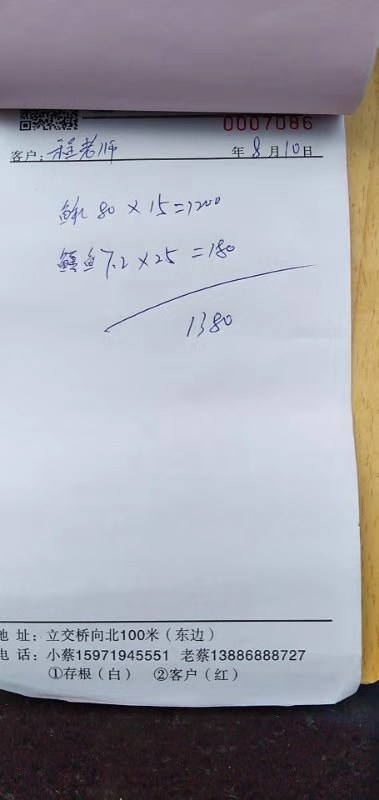 0007086
客户：程老师 年8月10日
80×15=1200
鳝鱼7.2×25=180
1380
地 址：立交桥向北100米（东边）
电 话：小蔡15971945551 老蔡13886888727
①存根（白） ②客户（红）